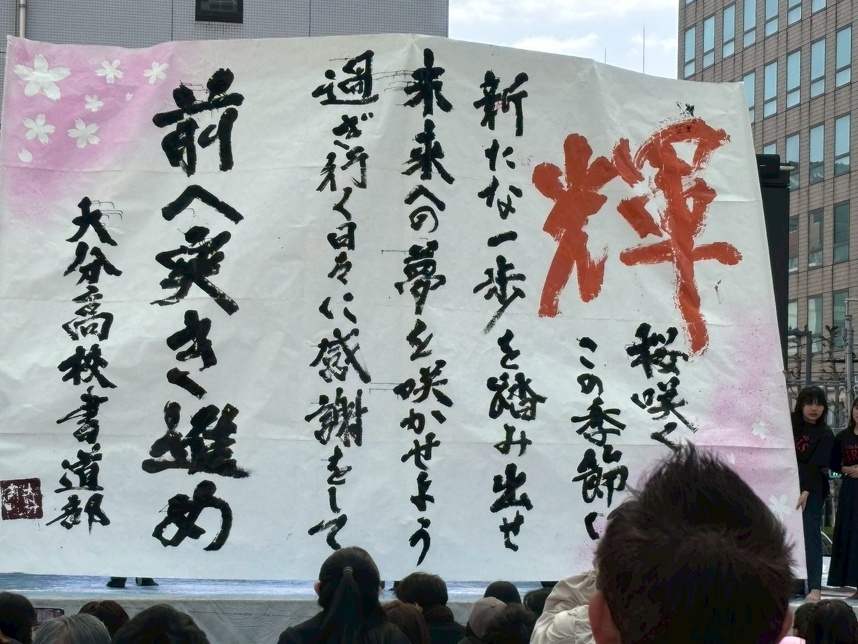 輝
桜咲く
この季節に
新たな一歩を踏み出せ
未来への夢を咲かせよう
過ぎ行く日々に感謝をして
前へ突き進め
大分高校書道部